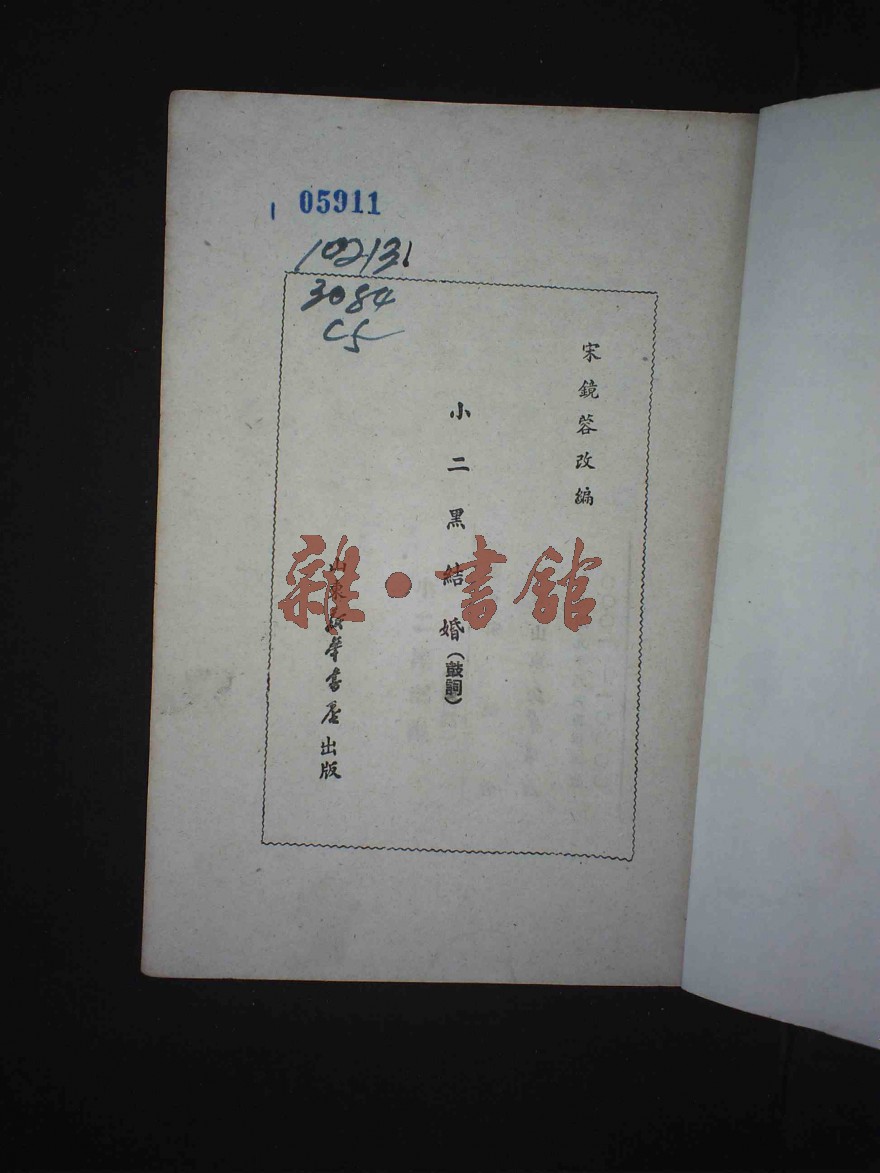 05911
102131
3084
宋鏡蓉改編
小二黑結婚(鼓詞)
山東新華書店出版
雜·書館